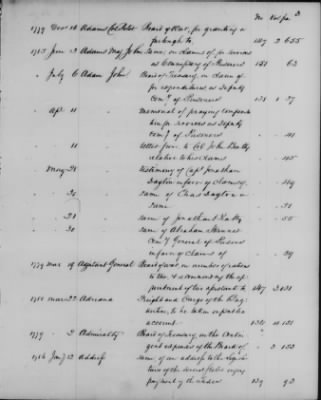 No Vol pa 3
1779 Decr 16 Adams Col Peter Board of War, for granting a
furlough to 147 2 655
1785 June 13 Adams Maj John Same, on claims of, for services
as Commissary of Prisoners 151 63
" July 6 Adam John Board of Treasury, on claim of
for expenditures as Deputy
Comy of Prisoners 138 1 37
" Apr 11 Memorial of praying compensa
tion for services as Deputy
Comy of Prisoners " 41
" " 11 Letter from to Col John Beatty
relative to his claims " 45
" May 28 Testimony of Capt Jonathan
Dayton in favor of claims of " 49
" " 28 Same of Elias Dayton in
same " 51
" " 21 Same of Jonathan
" " 30 Same of Abraham Skinner
Comy General of Prisoners
in favor of claims of " 59
1779 Mar 19 Adjutant General Board of war, on number of rations
to the & recommending the ap-
pointment of two assistants to 147 3 131
1781 Mar 22 Adriana Freight and Cargo of the Brig
to be taken on public
account 137 10 131
1779 " 2 Admiralty Board of Treasury, on the Contin
gent expenses of the Board of " 3 153
1786 Jany 23 Address Same, of an address to the Legisla
tures of the several States urging
payment of the 139 93